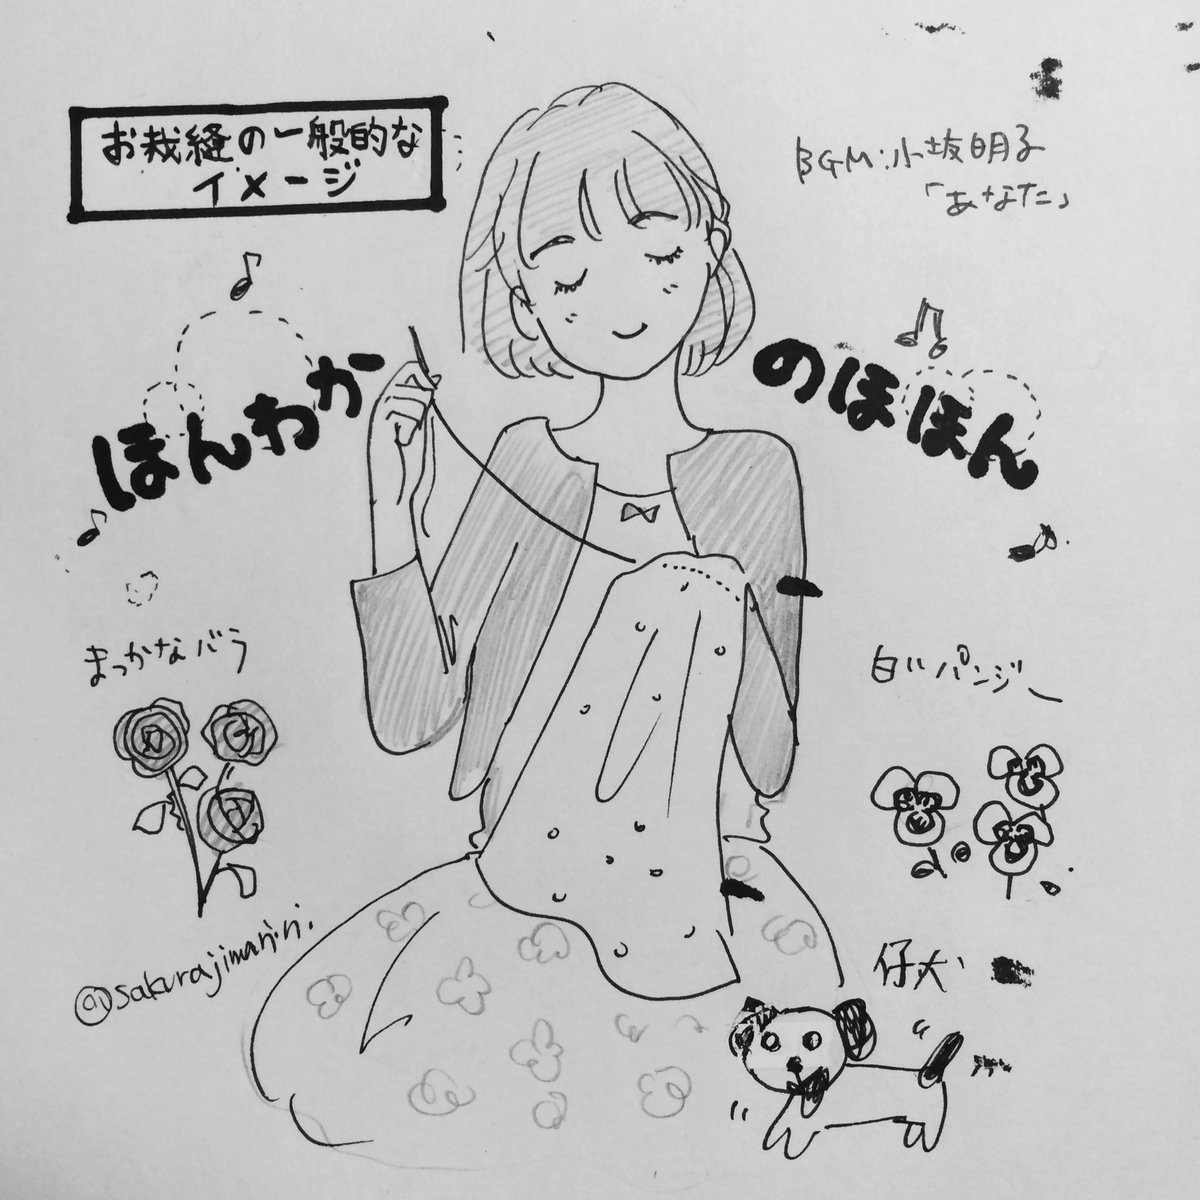 お裁縫の一般的な
イメージ
BGM:小坂明子
「あなた」
ほんわか
のほほん
まっかなバラ
白いパンジー
仔犬
@sakurajimanini.